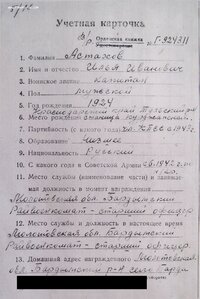 Учетная карточка
Орденская книжка
№ Г-924311
1. Фамилия Астахов
2. Имя и отчество Илья Иванович
3. Воинское звание капитан
4. Пол мужской
5. Год рождения 1924
6. Место рождения Краснодарский край
7. Партийность (с какого года) чл. КПСС с 1945 г.
8. Образование
9. Национальность Русский
10. С какого года в Советской Армии с 1942 г.
11. Место службы (наименование части) и занимаемая должность в момент награждения
Молотовская обл. Бардымский
Райвоенкомат - старший офицер
12. Место службы и должность в настоящее время
Молотовская обл. Бардымский
Райвоенкомат - старший офицер
13. Домашний адрес награжденного Молотовская
обл. Бардымский р-н село Барда